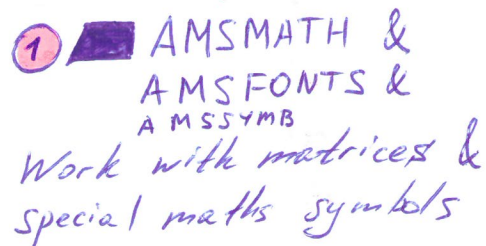 1 AMSMATH &
AMSFONTS &
AMSSYMB
Work with matrices &
special maths symbols